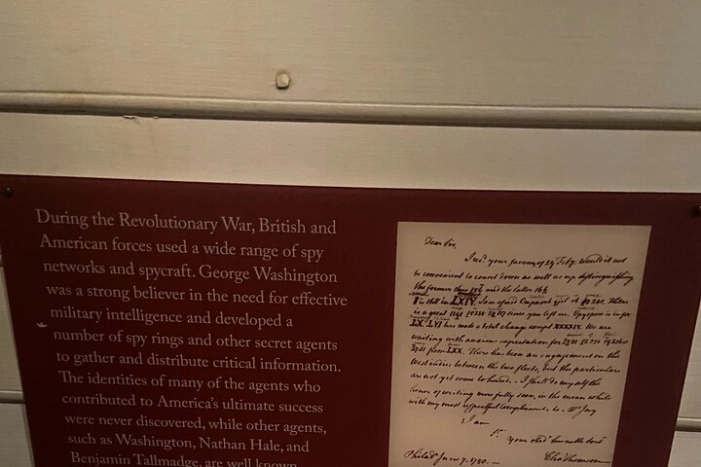 During the Revolutionary War, British and
American forces used a wide range of spy
networks and spycraft. George Washington
was a strong believer in the need for effective
military intelligence and developed a
number of spy rings and other secret agents
to gather and distribute critical information.
The identities of many of the agents who
contributed to America's ultimate success
were never discovered, while other agents,
such as Washington, Nathan Hale, and
Benjamin Tallmadge, are well known
Dear Sir,
your favour of 24 Feby. Would it not
be convenient to count down as well as up distinguishing
the former thus and the latter
LXIV
is a great since you left us.
LX LVI has made a total change except XXXXIV. We are
waiting with anxious expectation for
from LXX. There has been an engagement in the
West indies between the two fleets, but the particulars
are not yet come to hand. I shall do myself the
honor of writing more fully soon, in the mean while
with my most respectful compliments to Mrs Jay
I am
your obedt humble servt
Philada June 7. 1780.
Chas Thomson